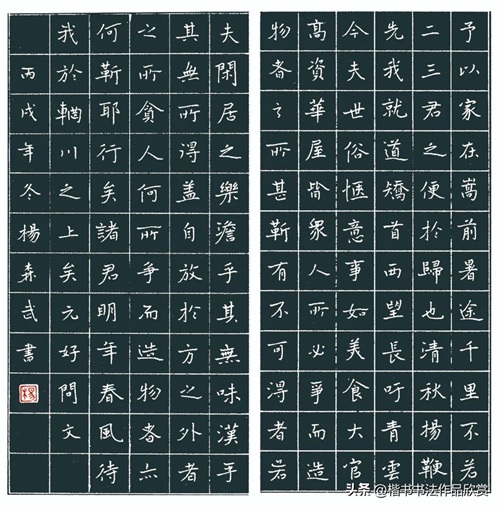 予以家在嵩前暑途千里不若
二三君之便於歸也清秋揚鞭
先我就道矯首西望長吁青雲
今夫世俗愜意事如美食大官
高資華屋皆眾人所必爭而造
物者之所甚靳有不可得者若
夫閑居之樂澹乎其無味漢乎
其無所得蓋自放於方之外者
之所貪人何所爭而造物者亦
何靳耶行矣諸君明年春風待
我於輞川之上矣元好問文
丙戌年冬楊森武書
头条@楷书书法作品欣赏